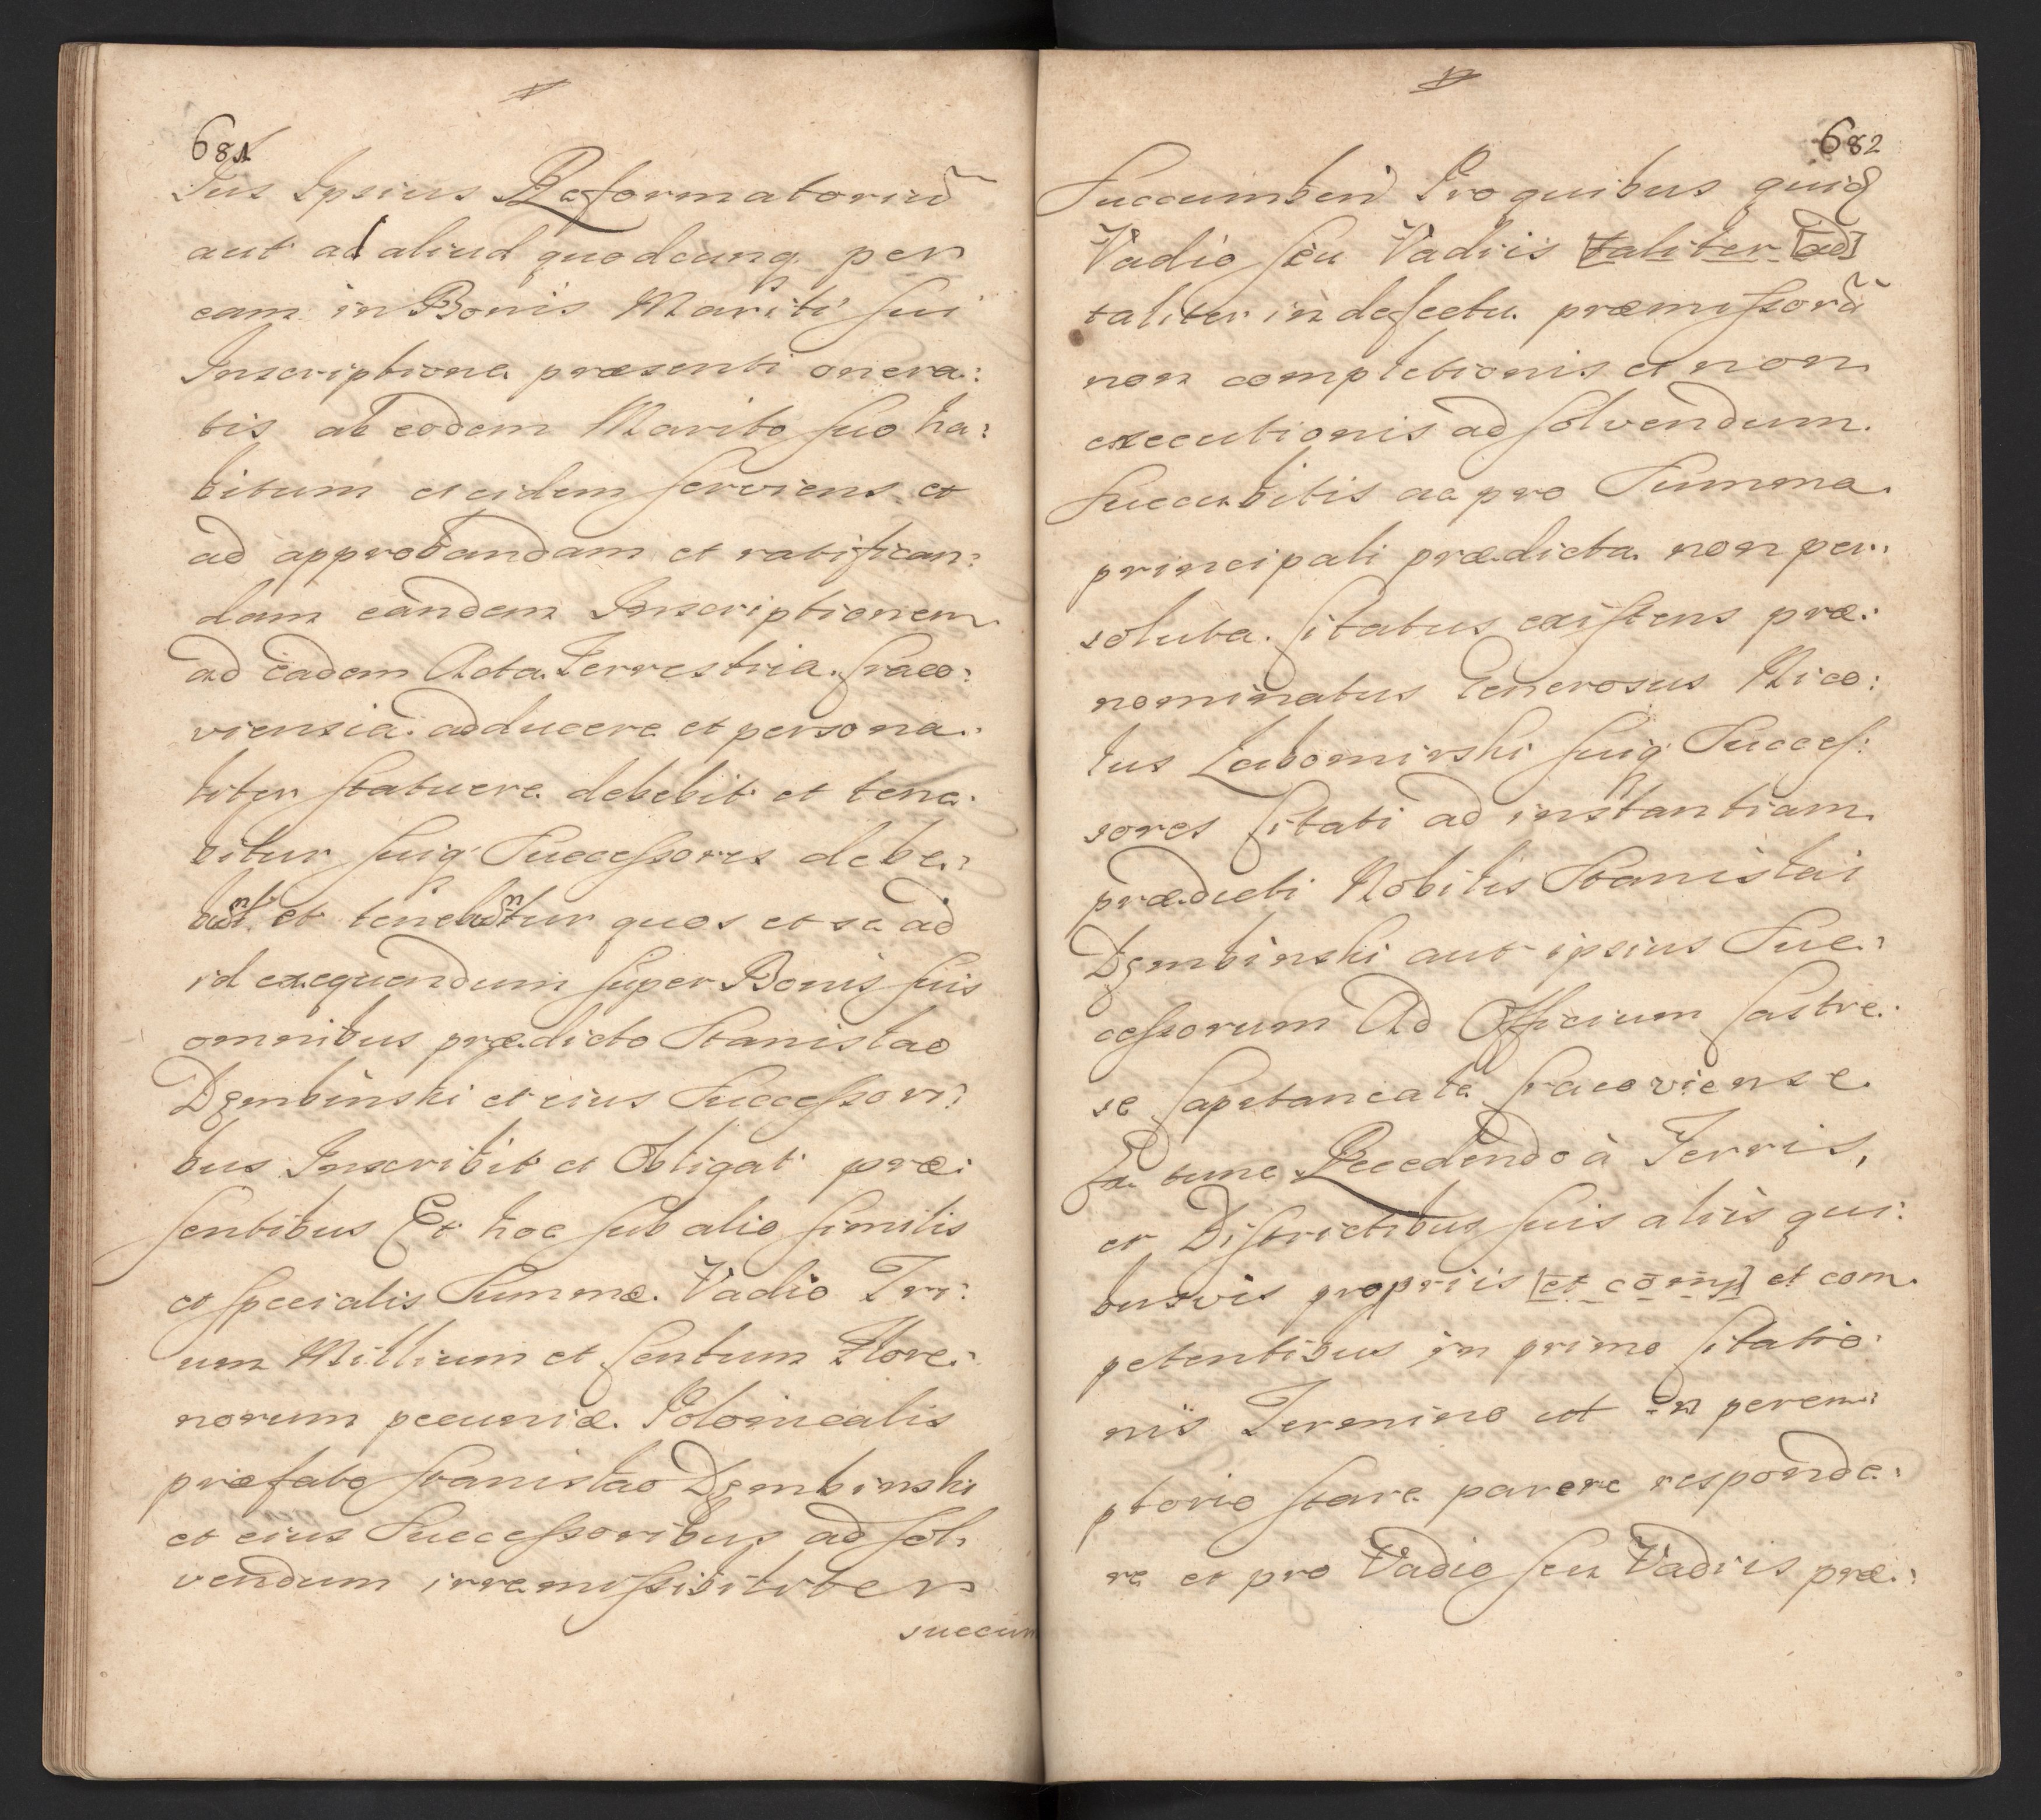 681
Jus Ipsius Reformatoriũ
aut ad aliud quodcunq per
eam in Bonis Mariti sui
Inscriptione præsenti onera:
tis ab eodem Marito suo ha:
bitum et eidem serviens et
ad approbandam et ratifican:
dam eandem Inscriptionem
ad eadem Acta Terrestria Craco:
viensia adducere et persona:
liter statuere debebit et tene:
bitur suiq Successores debe:
bunt et tenebuntur quos et se ad
id exequendum super Bonis suis
omnibus prædicto Stanislao
Dzembinski et eius Successori:
bus Inscribit et Obligat præ:
sentibus Et hoc sub alio similis
et specialis Summæ Vadio Tri:
um Millium et Centum Flore:
norum pecuniæ Polonicalis
præfato Stanislao Dzembinski
et eius Successoribus ad sol:
vendum irremissibiliter
succum
682
Succumben Pro quibus quiq
Vadio seu Vadiis [taliter [ad]
taliter in defectu præmissorũ
non completionis et non
executionis ad solvendum
succubitis ac pro Summa
principali prædicta non per:
soluta Citatus existens præ:
nominatus Generosus Nico:
laus Labomirski suiq Succes:
sores Citati ad instantiam
prædicti Nobilis Stanislai
Dzembinski aut ipsius Suc:
cessorum Ad Officium Castre:
se Capetaneale Cracoviense
Ex tunc Recedendo à Terris,
et Districtibus suis aliis qui:
busvis propriis [et comp] et com:
petentibus in primo Citatio:
nis Termino ut in perem:
ptorio stare parere responde:
re et pro Vadio seu Vadiis præ: